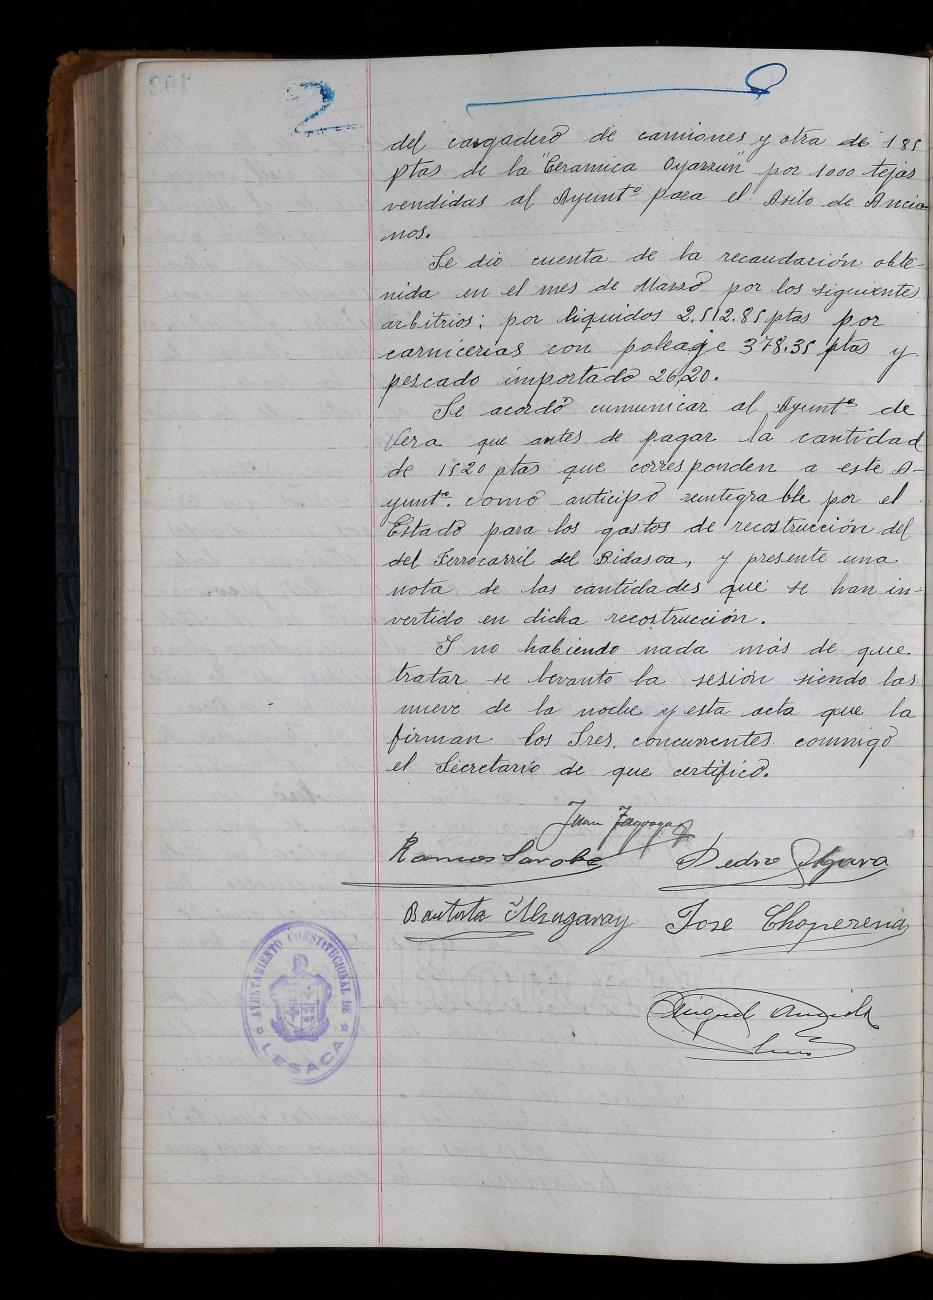 2
del cargadero de camiones y otra de 185
ptas de la "Ceramica Oyarzun" por 1000 tejas
vendidas al Ayuntº para el Asilo de Ancia
nos.
Se dio cuenta de la recaudación obte-
nida en el mes de Marzo por los siguientes
arbitrios; por liquidos 2.512.85 ptas por
carnicerias con 378.35 ptas y
pescado importado 26,20.
Se acordó cumunicar al Ayuntº de
Vera que antes de pagar la cantidad
de 1520 ptas que corresponden a este A-
yuntº. como anticipo reintegrable por el
Estado para los gastos de recostrucción del
del Ferrocarril del Bidasoa, y presente una
nota de las cantidades que se han in-
vertido en dicha recostrucción.
Y no habiendo nada más de que
tratar se levanto la sesión siendo las
nueve de la noche y esta acta que la
firman los Sres. concurrentes conmigo
el Secretario de que certifico.
Juan
Ramos Sarobe Pedro
Bautista Jose Choperena
Miguel
AYUNTAMIENTO CONSTITUCIONAL DE
LESACA